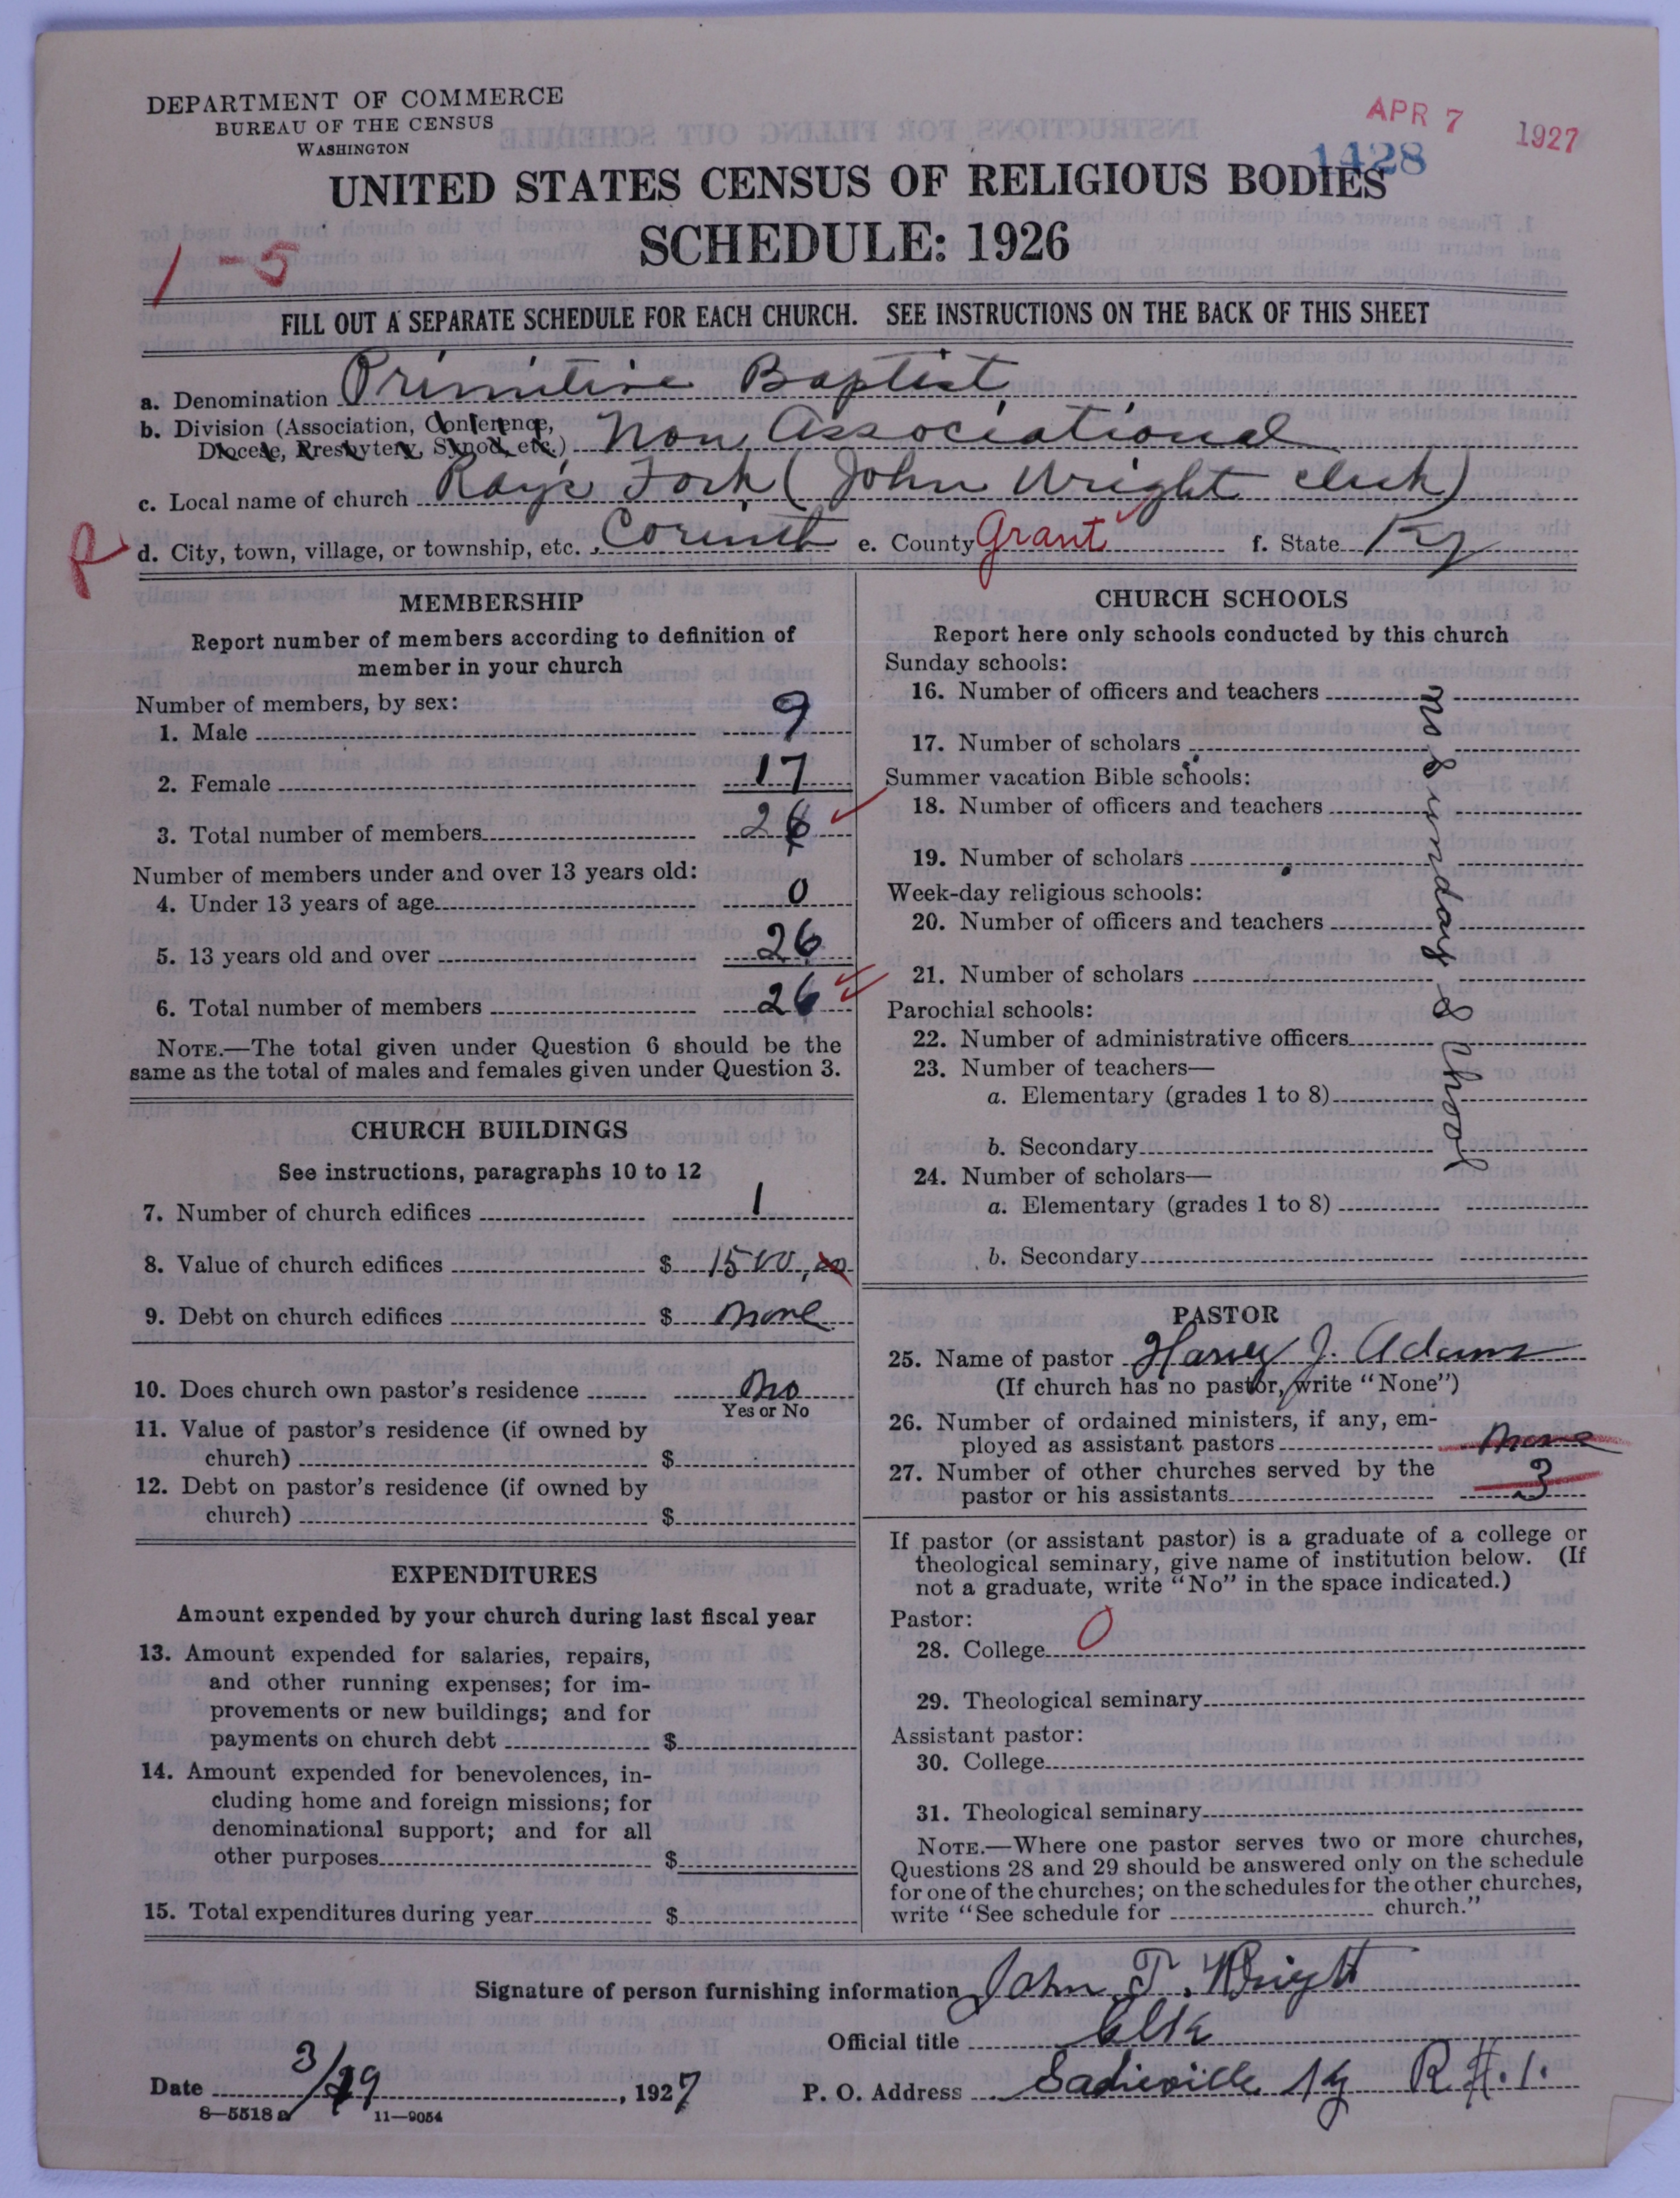 DEPARTMENT OF COMMERCE
BUREAU OF THE CENSUS
WASHINGTON
APR 7 1927
1428
UNITED STATES CENSUS OF RELIGIOUS BODIES
SCHEDULE: 1926
1-5
FILL OUT A SEPARATE SCHEDULE FOR EACH CHURCH. SEE INSTRUCTIONS ON THE BACK OF THIS SHEET
a. Denomination Primitive Baptist
b. Division (Association, Conference,
Diocese, Presbytery, Synod, etc.) Non Associational
c. Local name of church Rays Fork (John Wright clerk)
R d. City, town, village, or township, etc. Corinth e. County Grant f. State Ky
MEMBERSHIP
Report number of members according to definition of
member in your church
Number of members, by sex:
1. Male 9
2. Female 17
3. Total number of members 26
Number of members under and over 13 years old:
4. Under 13 years of age 0
5. 13 years old and over 26
6. Total number of members 26
NOTE.—The total given under Question 6 should be the
same as the total of males and females given under Question 3.
CHURCH BUILDINGS
See instructions, paragraphs 10 to 12
7. Number of church edifices 1
8. Value of church edifices $ 1500,00
9. Debt on church edifices $ none
10. Does church own pastor's residence no
Yes or No
11. Value of pastor's residence (if owned by
church) $
12. Debt on pastor's residence (if owned by
church) $
EXPENDITURES
Amount expended by your church during last fiscal year
13. Amount expended for salaries, repairs,
and other running expenses; for im-
provements or new buildings; and for
payments on church debt $
14. Amount expended for benevolences, in-
cluding home and foreign missions; for
denominational support; and for all
other purposes $
15. Total expenditures during year $
CHURCH SCHOOLS
Report here only schools conducted by this church
Sunday schools:
16. Number of officers and teachers
17. Number of scholars
Summer vacation Bible schools:
18. Number of officers and teachers
19. Number of scholars
Week-day religious schools:
20. Number of officers and teachers
21. Number of scholars
Parochial schools:
22. Number of administrative officers
23. Number of teachers—
a. Elementary (grades 1 to 8)
b. Secondary
24. Number of scholars—
a. Elementary (grades 1 to 8)
b. Secondary
no Sunday School
PASTOR
25. Name of pastor Harvey J. Adams
(If church has no pastor, write "None")
26. Number of ordained ministers, if any, em-
ployed as assistant pastors none
27. Number of other churches served by the
pastor or his assistants 3
If pastor (or assistant pastor) is a graduate of a college or
theological seminary, give name of institution below. (If
not a graduate, write "No" in the space indicated.)
Pastor:
28. College 0
29. Theological seminary
Assistant pastor:
30. College
31. Theological seminary
NOTE.—Where one pastor serves two or more churches,
Questions 28 and 29 should be answered only on the schedule
for one of the churches; on the schedules for the other churches,
write "See schedule for church."
Signature of person furnishing information John T. Wright
Official title Clk
Date 3/29, 1927 P. O. Address Sadieville Ky R.#.1.
8—5518 a 11—9054